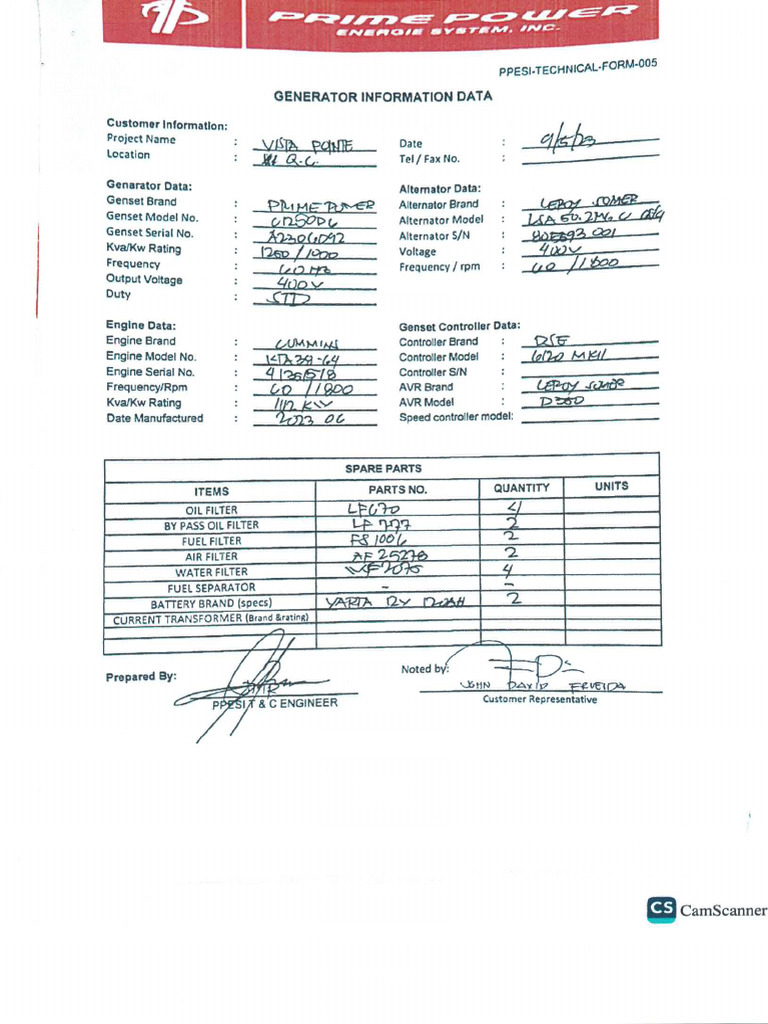 PRIME POWER
ENERGIE SYSTEM, INC.
PPESI-TECHNICAL-FORM-005
GENERATOR INFORMATION DATA
Customer Information:
Project Name : VISTA POINTE
Location : Q.C.
Date : 9/5/23
Tel / Fax No. :
Genarator Data:
Genset Brand : PRIME POWER
Genset Model No. :
Genset Serial No. :
Kva/Kw Rating : 1250/1000
Frequency : 60 Hz
Output Voltage : 400V
Duty : STD
Alternator Data:
Alternator Brand : LEROY SOMER
Alternator Model :
Alternator S/N :
Voltage : 400V
Frequency / rpm : 60 /1800
Engine Data:
Engine Brand : CUMMINS
Engine Model No. :
Engine Serial No. :
Frequency/Rpm : 60 /1800
Kva/Kw Rating : 1112 KW
Date Manufactured : 2023 06
Genset Controller Data:
Controller Brand : DSE
Controller Model : 6120 MKII
Controller S/N :
AVR Brand : LEROY SOMER
AVR Model : D350
Speed controller model:
SPARE PARTS
ITEMS PARTS NO. QUANTITY UNITS
OIL FILTER LF670 4
BY PASS OIL FILTER LF777 2
FUEL FILTER FS1006 2
AIR FILTER AF25278 2
WATER FILTER WF2075 4
FUEL SEPARATOR - -
BATTERY BRAND (specs) VARTA 12V 120AH 2
CURRENT TRANSFORMER (Brand &rating)
Prepared By:
PPESI T & C ENGINEER
Noted by:
JOHN DAVID
Customer Representative
CS CamScanner